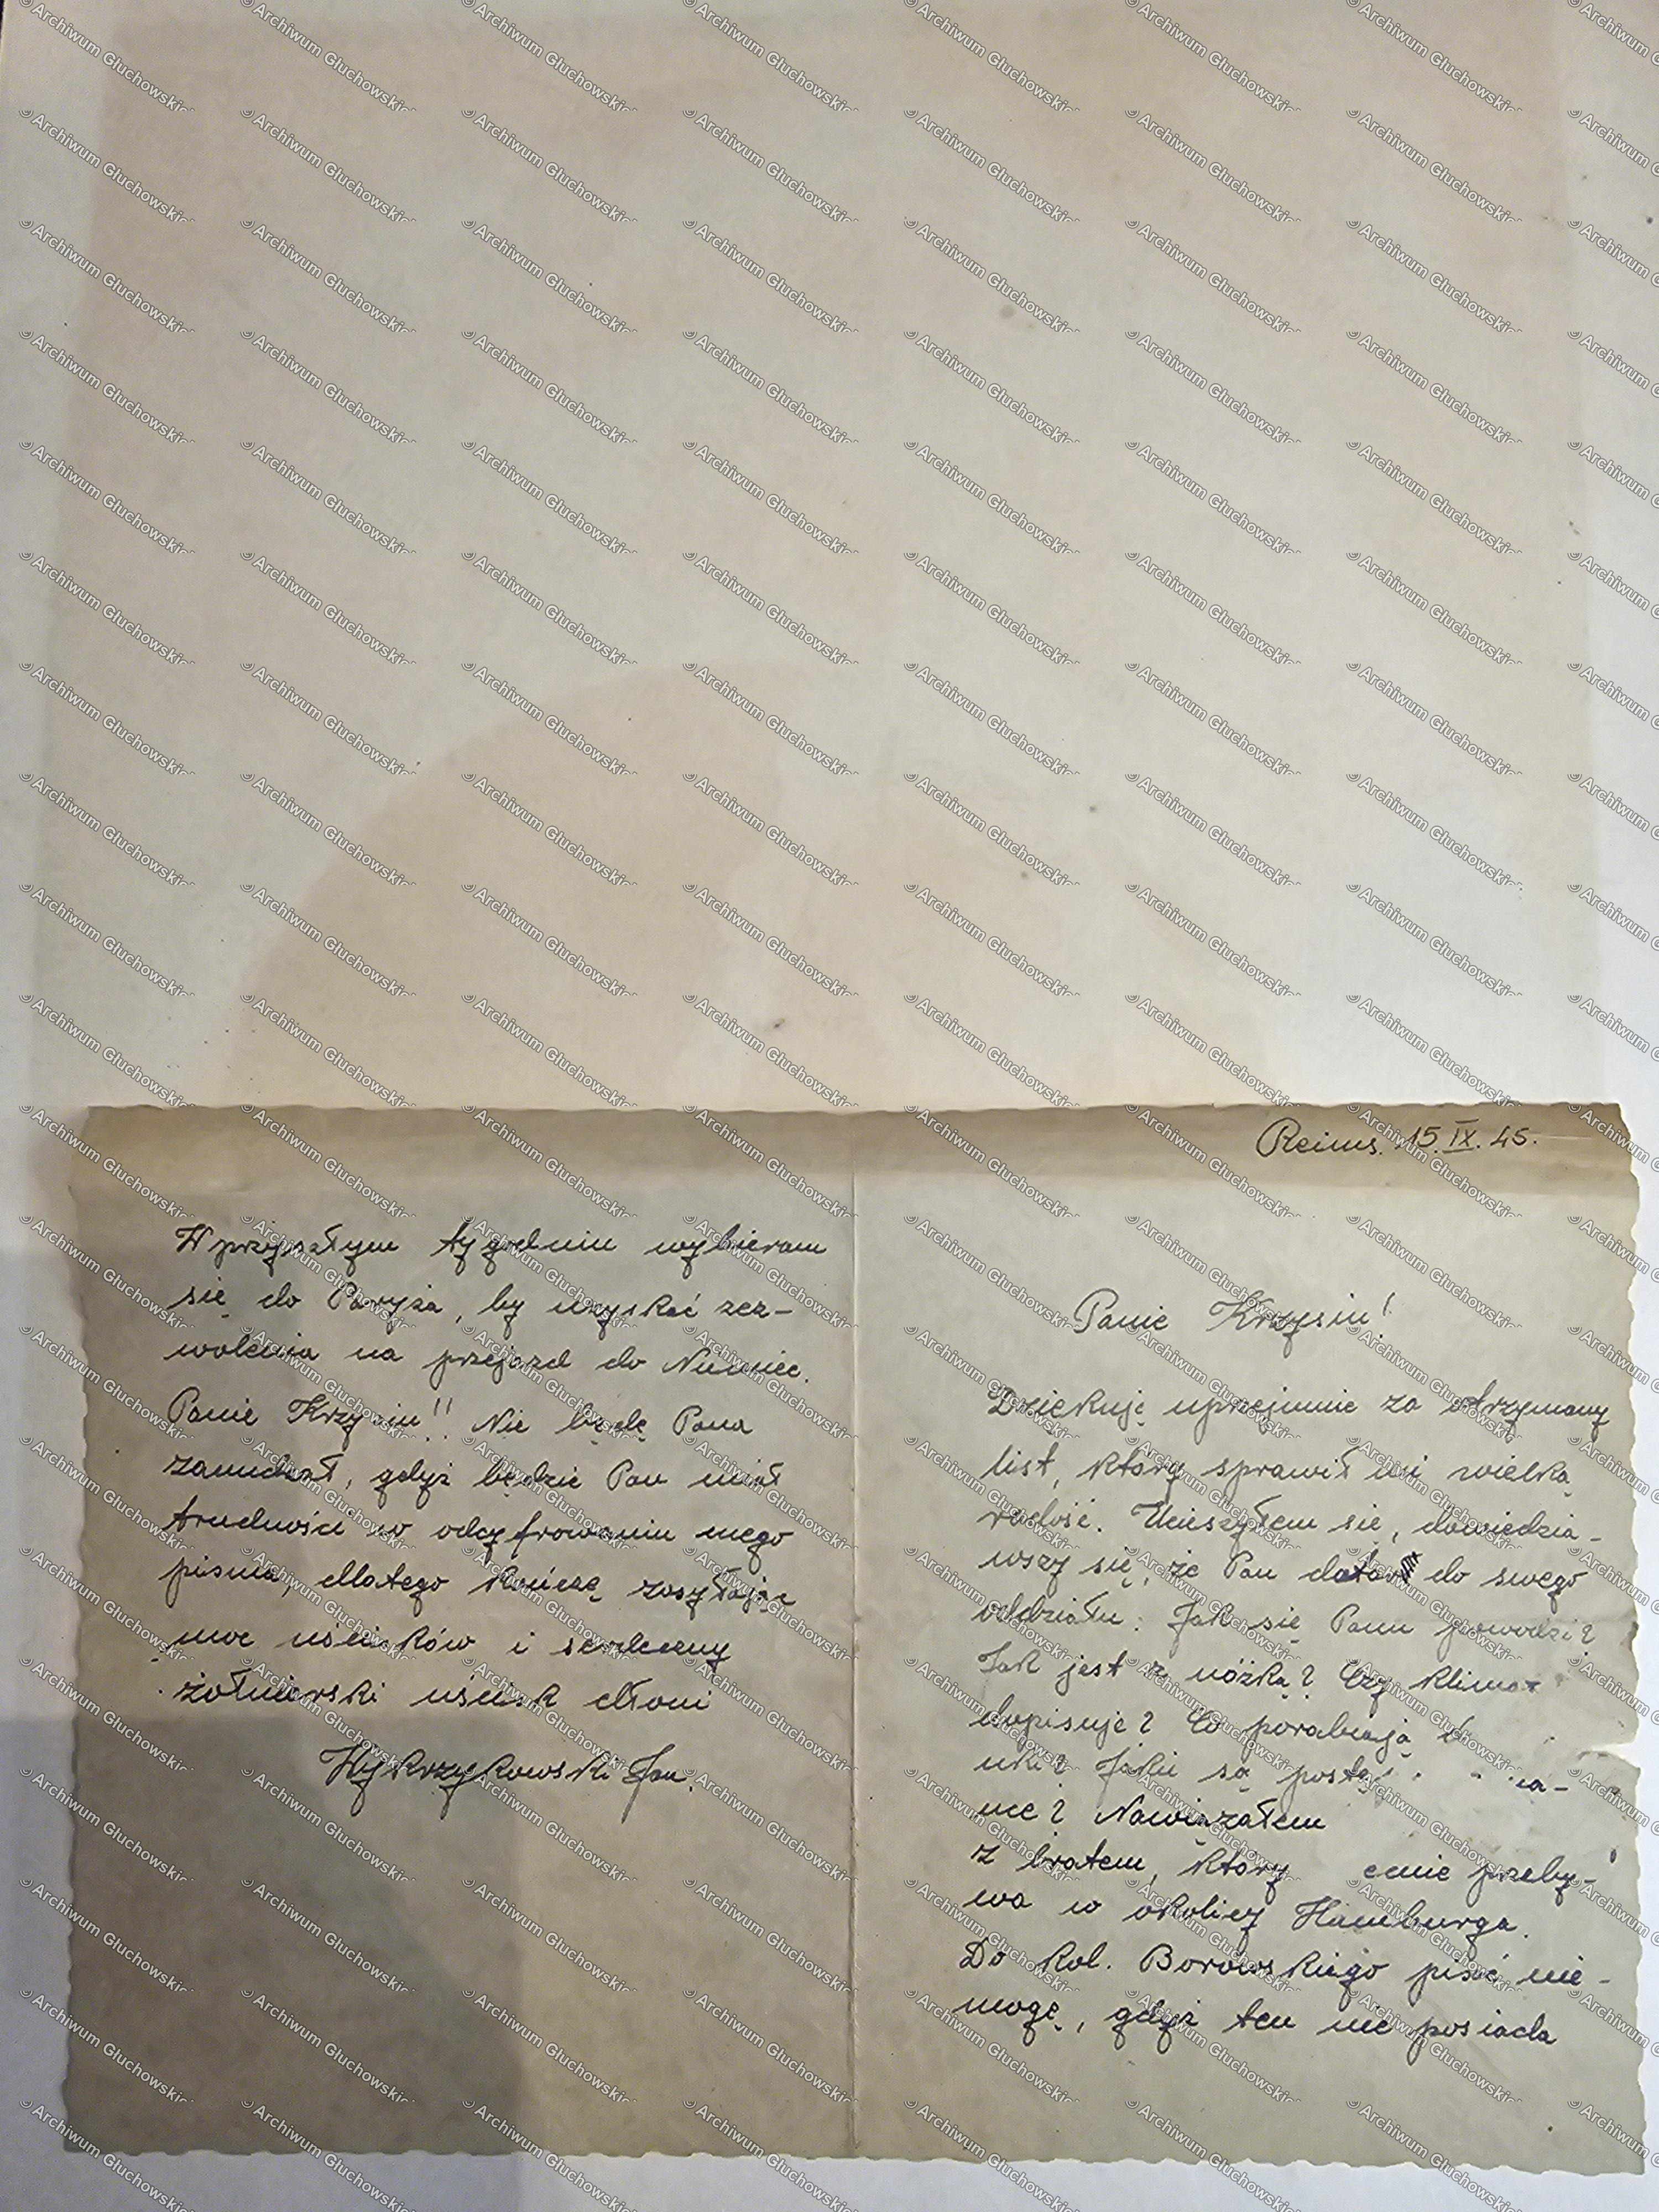 Reims. 15.IX.45.
Panie Krzysiu!
Dziękuję uprzejmie za otrzymany
list, który sprawił mi wielką
radość. Ucieszyłem się, dowiedzia-
wszy się, że Pan do swego
oddziału. Jak się Panu powodzi?
Jak jest z nóżką? Czy klimat
dopisuje? Co porabiają
są
me? Nawiązałem
z bratem, który ecnie przeby-
wa w okolicy Hamburga.
Do kol. Borowskiego pisać nie-
mogę, gdyż ten nie posiada
W przyszłym tygodniu wybieram
się do Paryża, by uzyskać zez-
wolenia na przejazd do Niemiec.
Panie Krzysiu!! Nie będę Pana
zanudzał, gdyż będzie Pan miał
trudności w odcyfrowaniu mego
pisma, dlatego kończę zasyłając
moc uścisków i serdeczny
żołnierski uścisk dłoni
Wykrzykowski Jan.
© Archiwum Głuchowskich